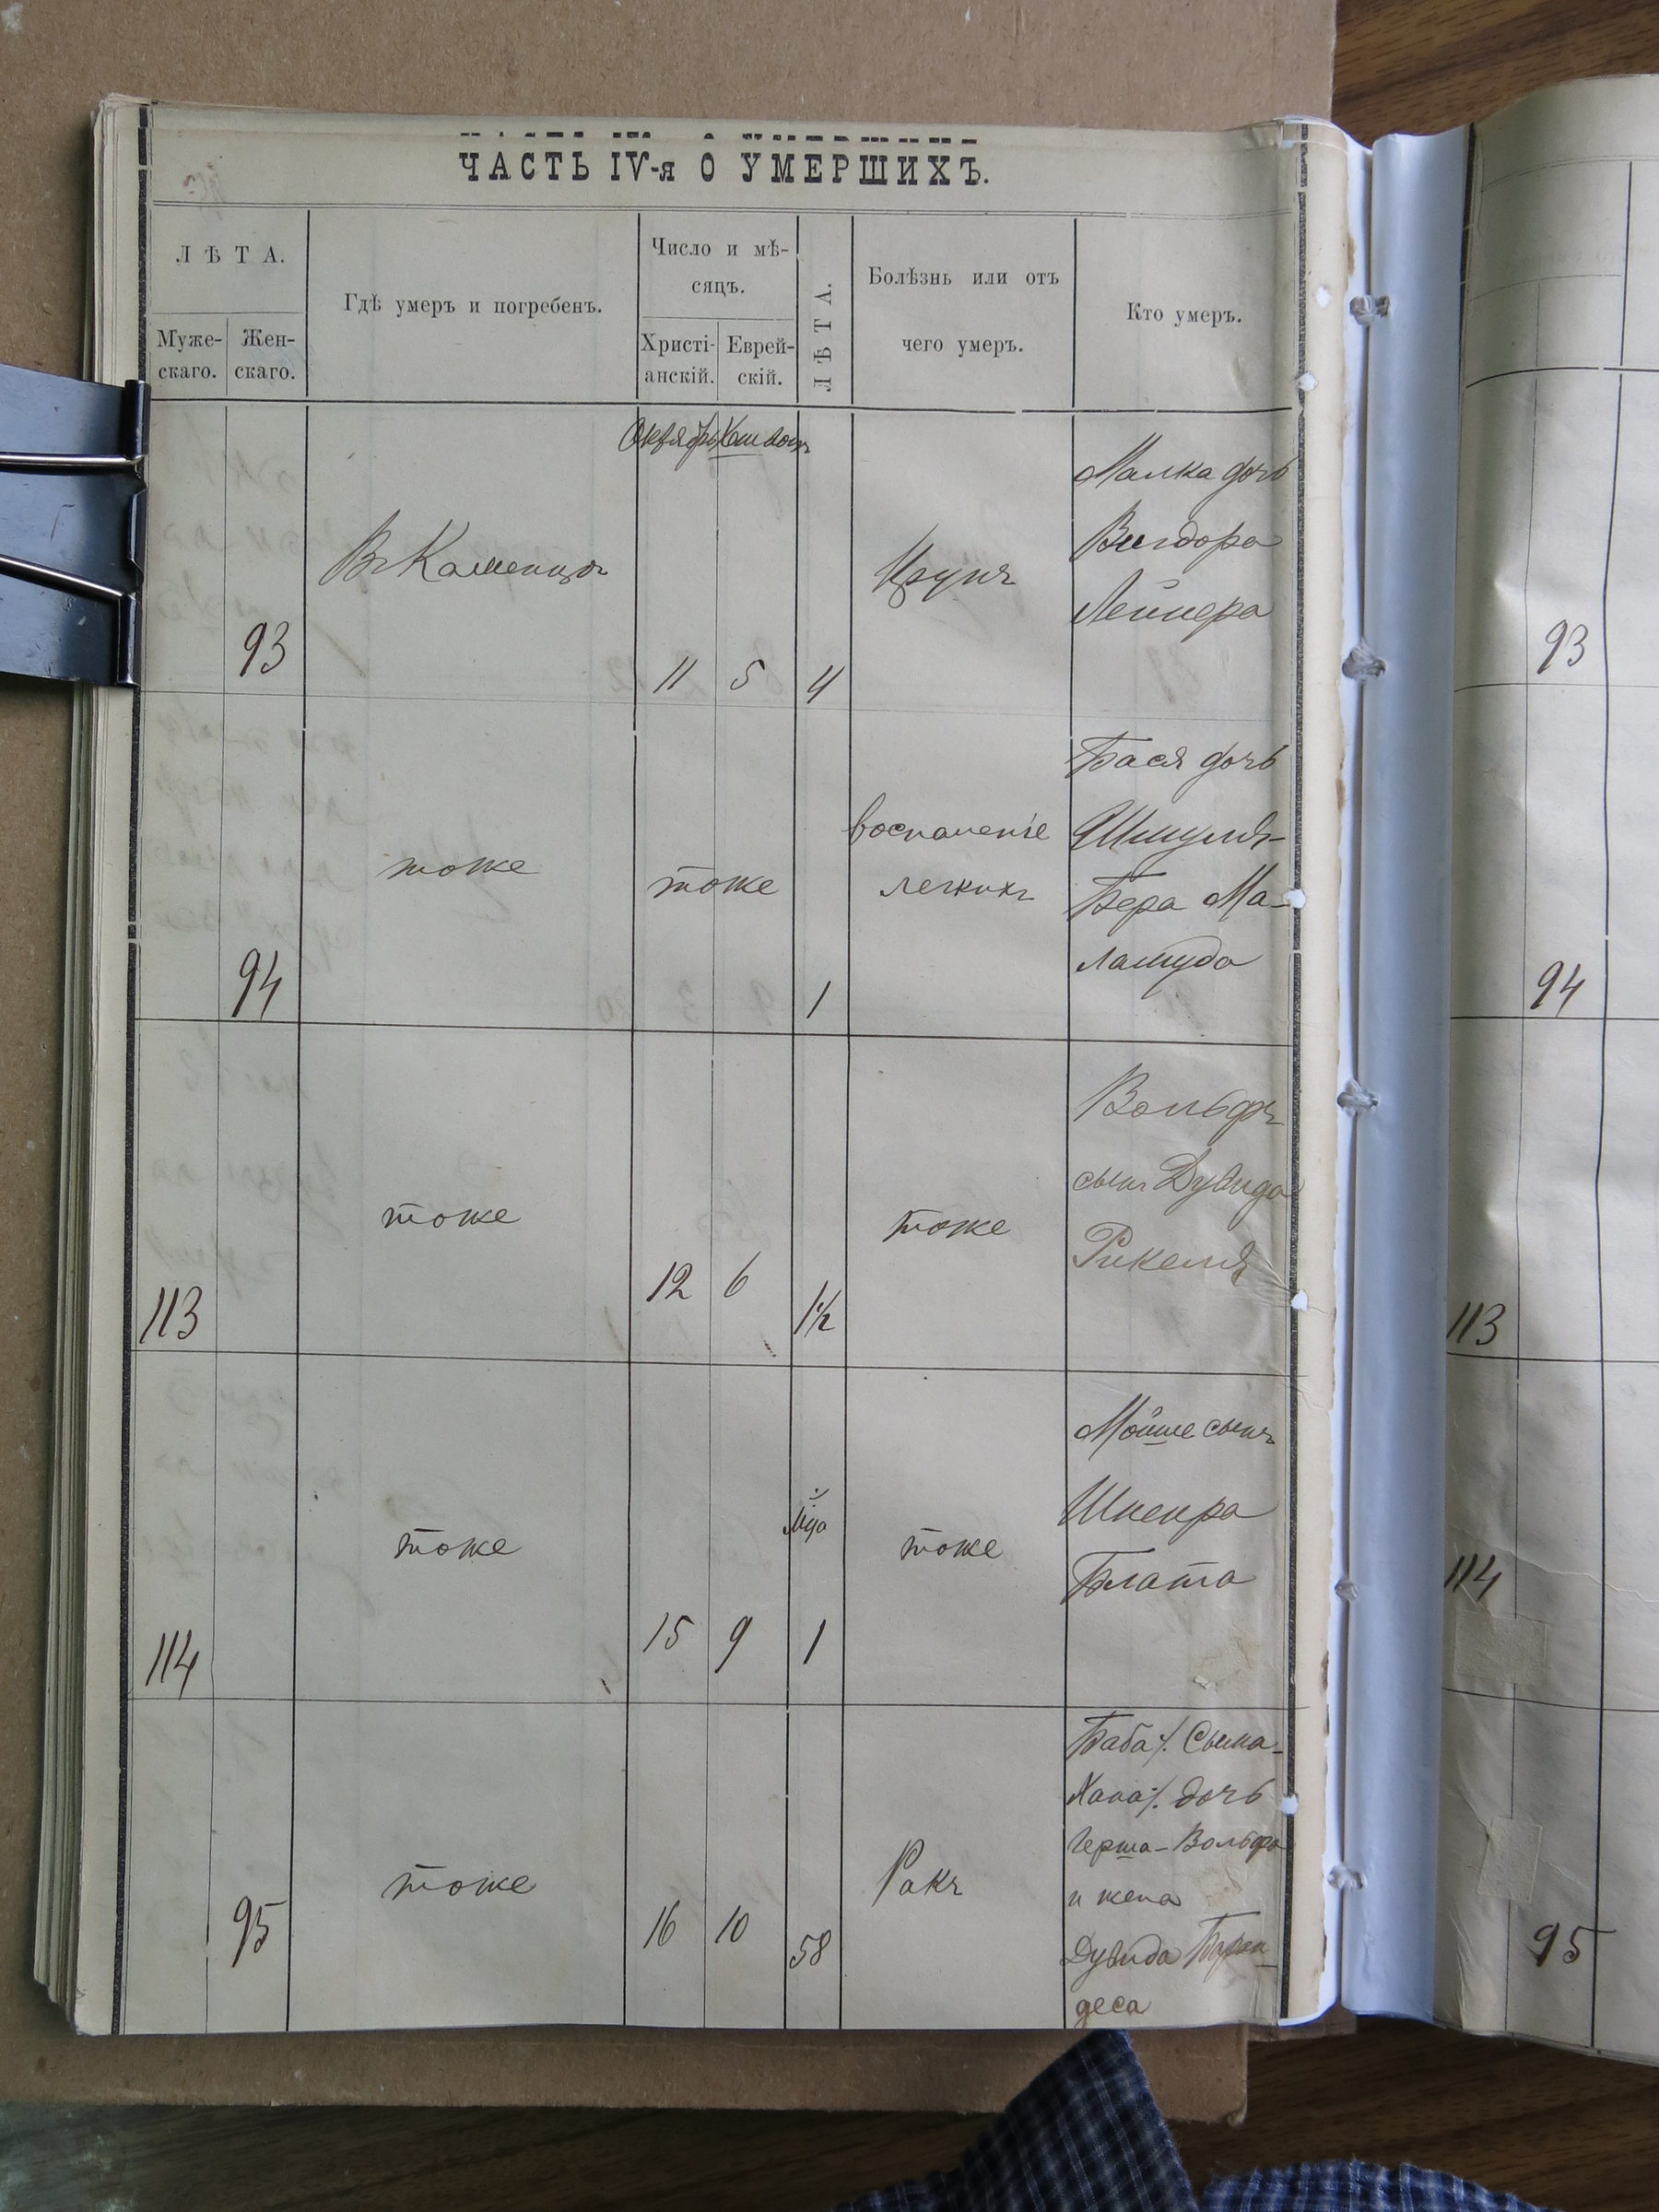 ЧАСТЬ IV-я О УМЕРШИХЪ.
ЛѢТА.
Муже-
скаго.
Жен-
скаго.
Гдѣ умеръ и погребенъ.
Число и мѣ-
сяцъ.
Христі-
анскій.
Еврей-
скій.
ЛѢТА.
Болѣзнь или отъ
чего умеръ.
Кто умеръ.
Октябрь
93
Въ Каменцѣ
11
5
4
Крупъ
Малка дочь
Вигдора
Лейнера
94
тоже
тоже
1
воспаленіе
легкихъ
Бася дочь
Шмуля-
Бера Ма-
ламуда
113
тоже
12
6
1½
тоже
Вольфъ
сынъ Дувида
Рикеля
114
тоже
15
9
1
тоже
Мойше сынъ
Шнеира
Блата
95
тоже
16
10
58
Ракъ
Баба ٪ Сыма-
Хана ٪ дочь
Герша-Вольфа
и жена
Дувида Боран
деса
93
94
113
114
95